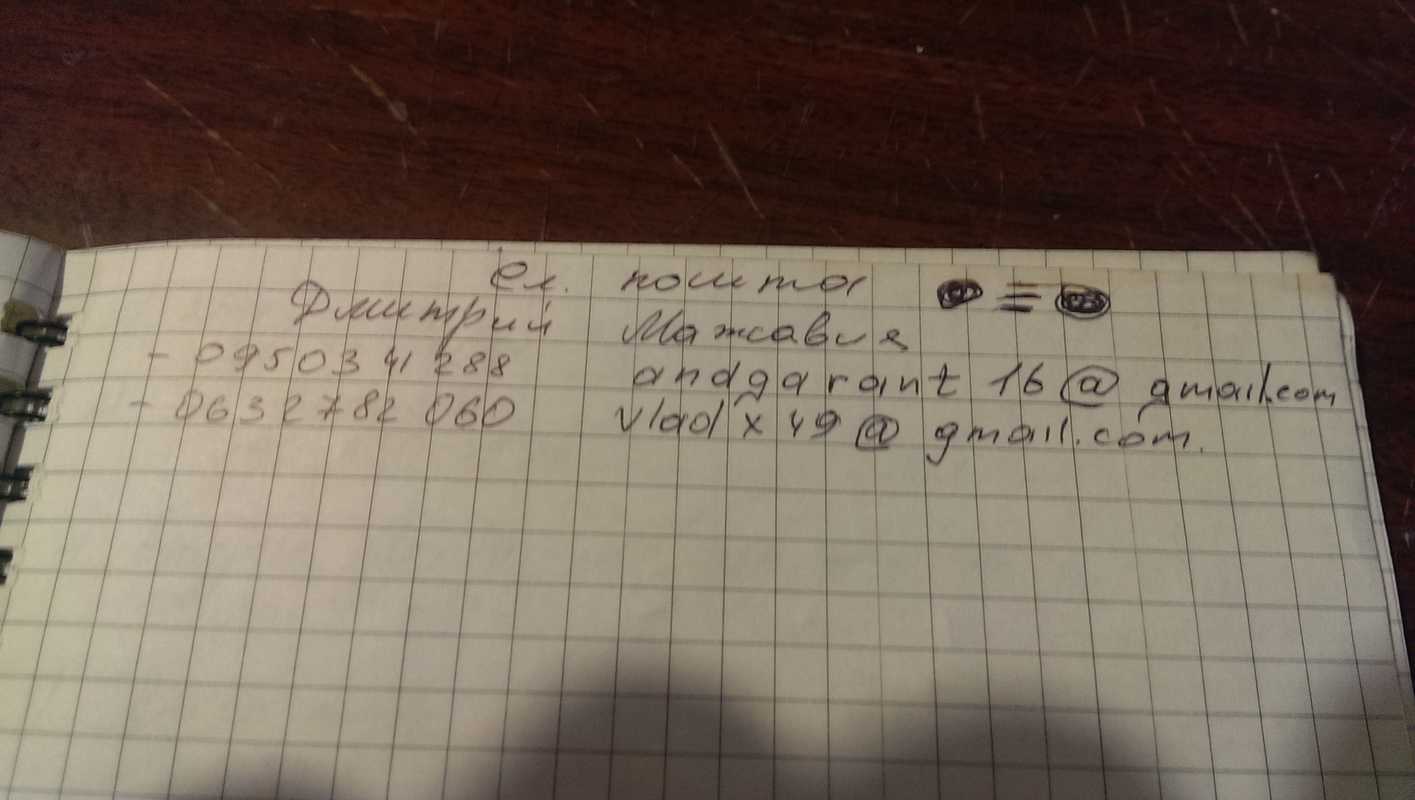 Ел. пошта =
Дмитрий Мажавия
- 0950341288 andgarant16@gmail.com
- 0632782060 vladx49@gmail.com.